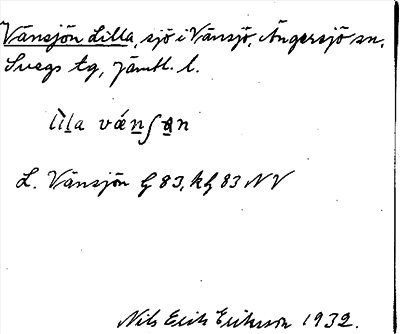 Vänsjön Lilla, sjö i Vänsjö, Ängersjö sn,
Svegs tg, Jämtl. l.
lìla vǽnʃan
L. Vänsjön G 83, kG 83 NV
Nils Erik Eriksson 1932.